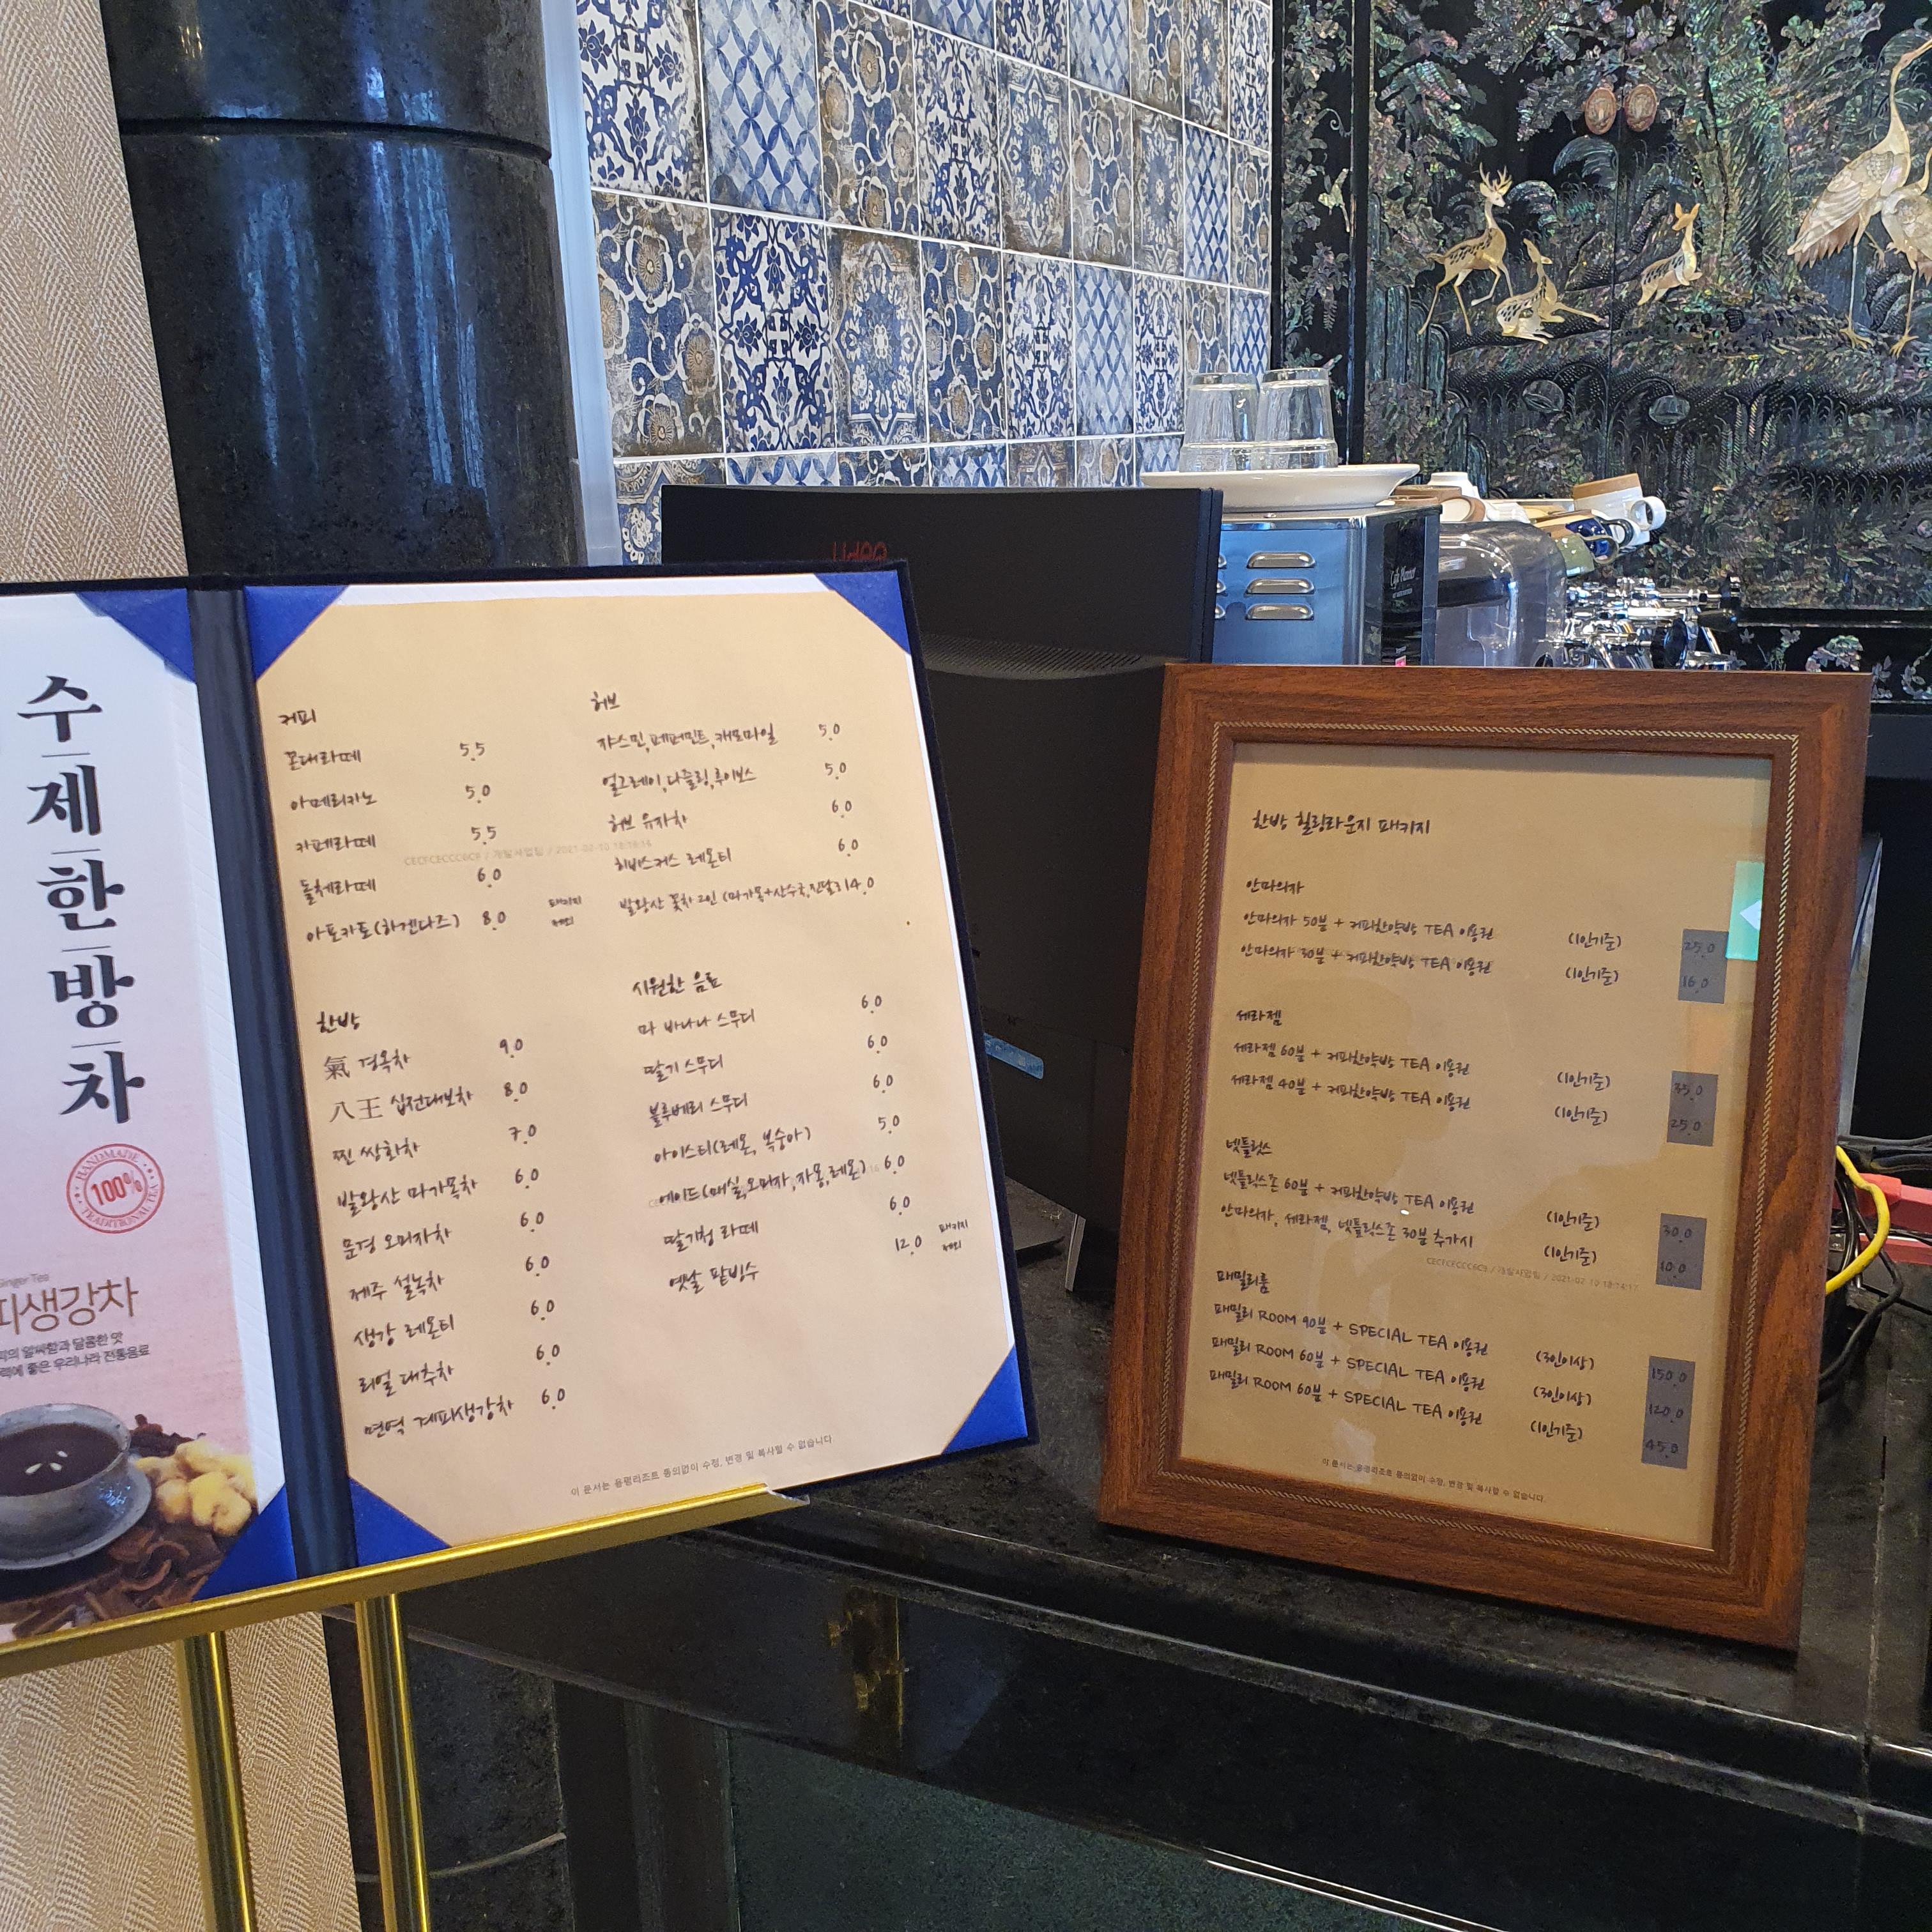 수제한방차
HANDMADE
100%
TRADITIONAL TEA
Ginger Tea
피생강차
피의 알싸함과 달콤한 맛
력에 좋은 우리나라 전통음료
커피
꼰대라떼 5.5
아메리카노 5.0
카페라떼 5.5
돌체라떼 6.0
아포카토(하겐다즈) 8.0 패키지 제외
한방
氣 경옥차 9.0
八王 십전대보차 8.0
찐 쌍화차 7.0
발왕산 마가목차 6.0
문경 오미자차 6.0
제주 설녹차 6.0
생강 레몬티 6.0
리얼 대추차 6.0
면역 계피생강차 6.0
허브
쟈스민,페퍼민트,캐모마일 5.0
얼그레이,다즐링,루이보스 5.0
허브 유자차 6.0
히비스커스 레몬티 6.0
발왕산 꽃차 2인 (마가목+산수국,진달래) 14.0
시원한 음료
마 바나나 스무디 6.0
딸기 스무디 6.0
블루베리 스무디 6.0
아이스티(레몬, 복숭아) 5.0
에이드(매실,오미자,자몽,레몬) 6.0
딸기청 라떼 6.0
옛날 팥빙수 12.0 패키지 제외
이 문서는 용평리조트 동의없이 수정, 변경 및 복사할 수 없습니다.
Cafe Planner
한방 힐링라운지 패키지
안마의자
안마의자 50분 + 커피한약방 TEA 이용권 (1인기준) 25.0
안마의자 30분 + 커피한약방 TEA 이용권 (1인기준) 16.0
세라젬
세라젬 60분 + 커피한약방 TEA 이용권 (1인기준) 35.0
세라젬 40분 + 커피한약방 TEA 이용권 (1인기준) 25.0
넷플릿스
넷플릭스존 60분 + 커피한약방 TEA 이용권 (1인기준) 30.0
안마의자, 세라젬, 넷플릭스존 30분 추가시 (1인기준) 10.0
패밀리룸
패밀리 ROOM 90분 + SPECIAL TEA 이용권 (3인이상) 150.0
패밀리 ROOM 60분 + SPECIAL TEA 이용권 (3인이상) 120.0
패밀리 ROOM 60분 + SPECIAL TEA 이용권 (1인기준) 45.0
이 문서는 용평리조트 동의없이 수정, 변경 및 복사할 수 없습니다.